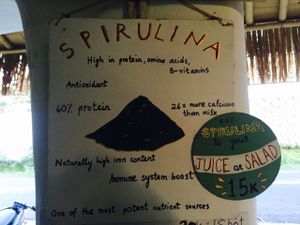 SPIRULINA
High in protein, amino acids,
B-vitamins
Antioxidant
60% protein
26x more calcium
than milk
Naturally high iron content
Immune system boost
One of the most potent nutrient sources
ADD
SPIRULINA
to your
JUICE or SALAD
15K